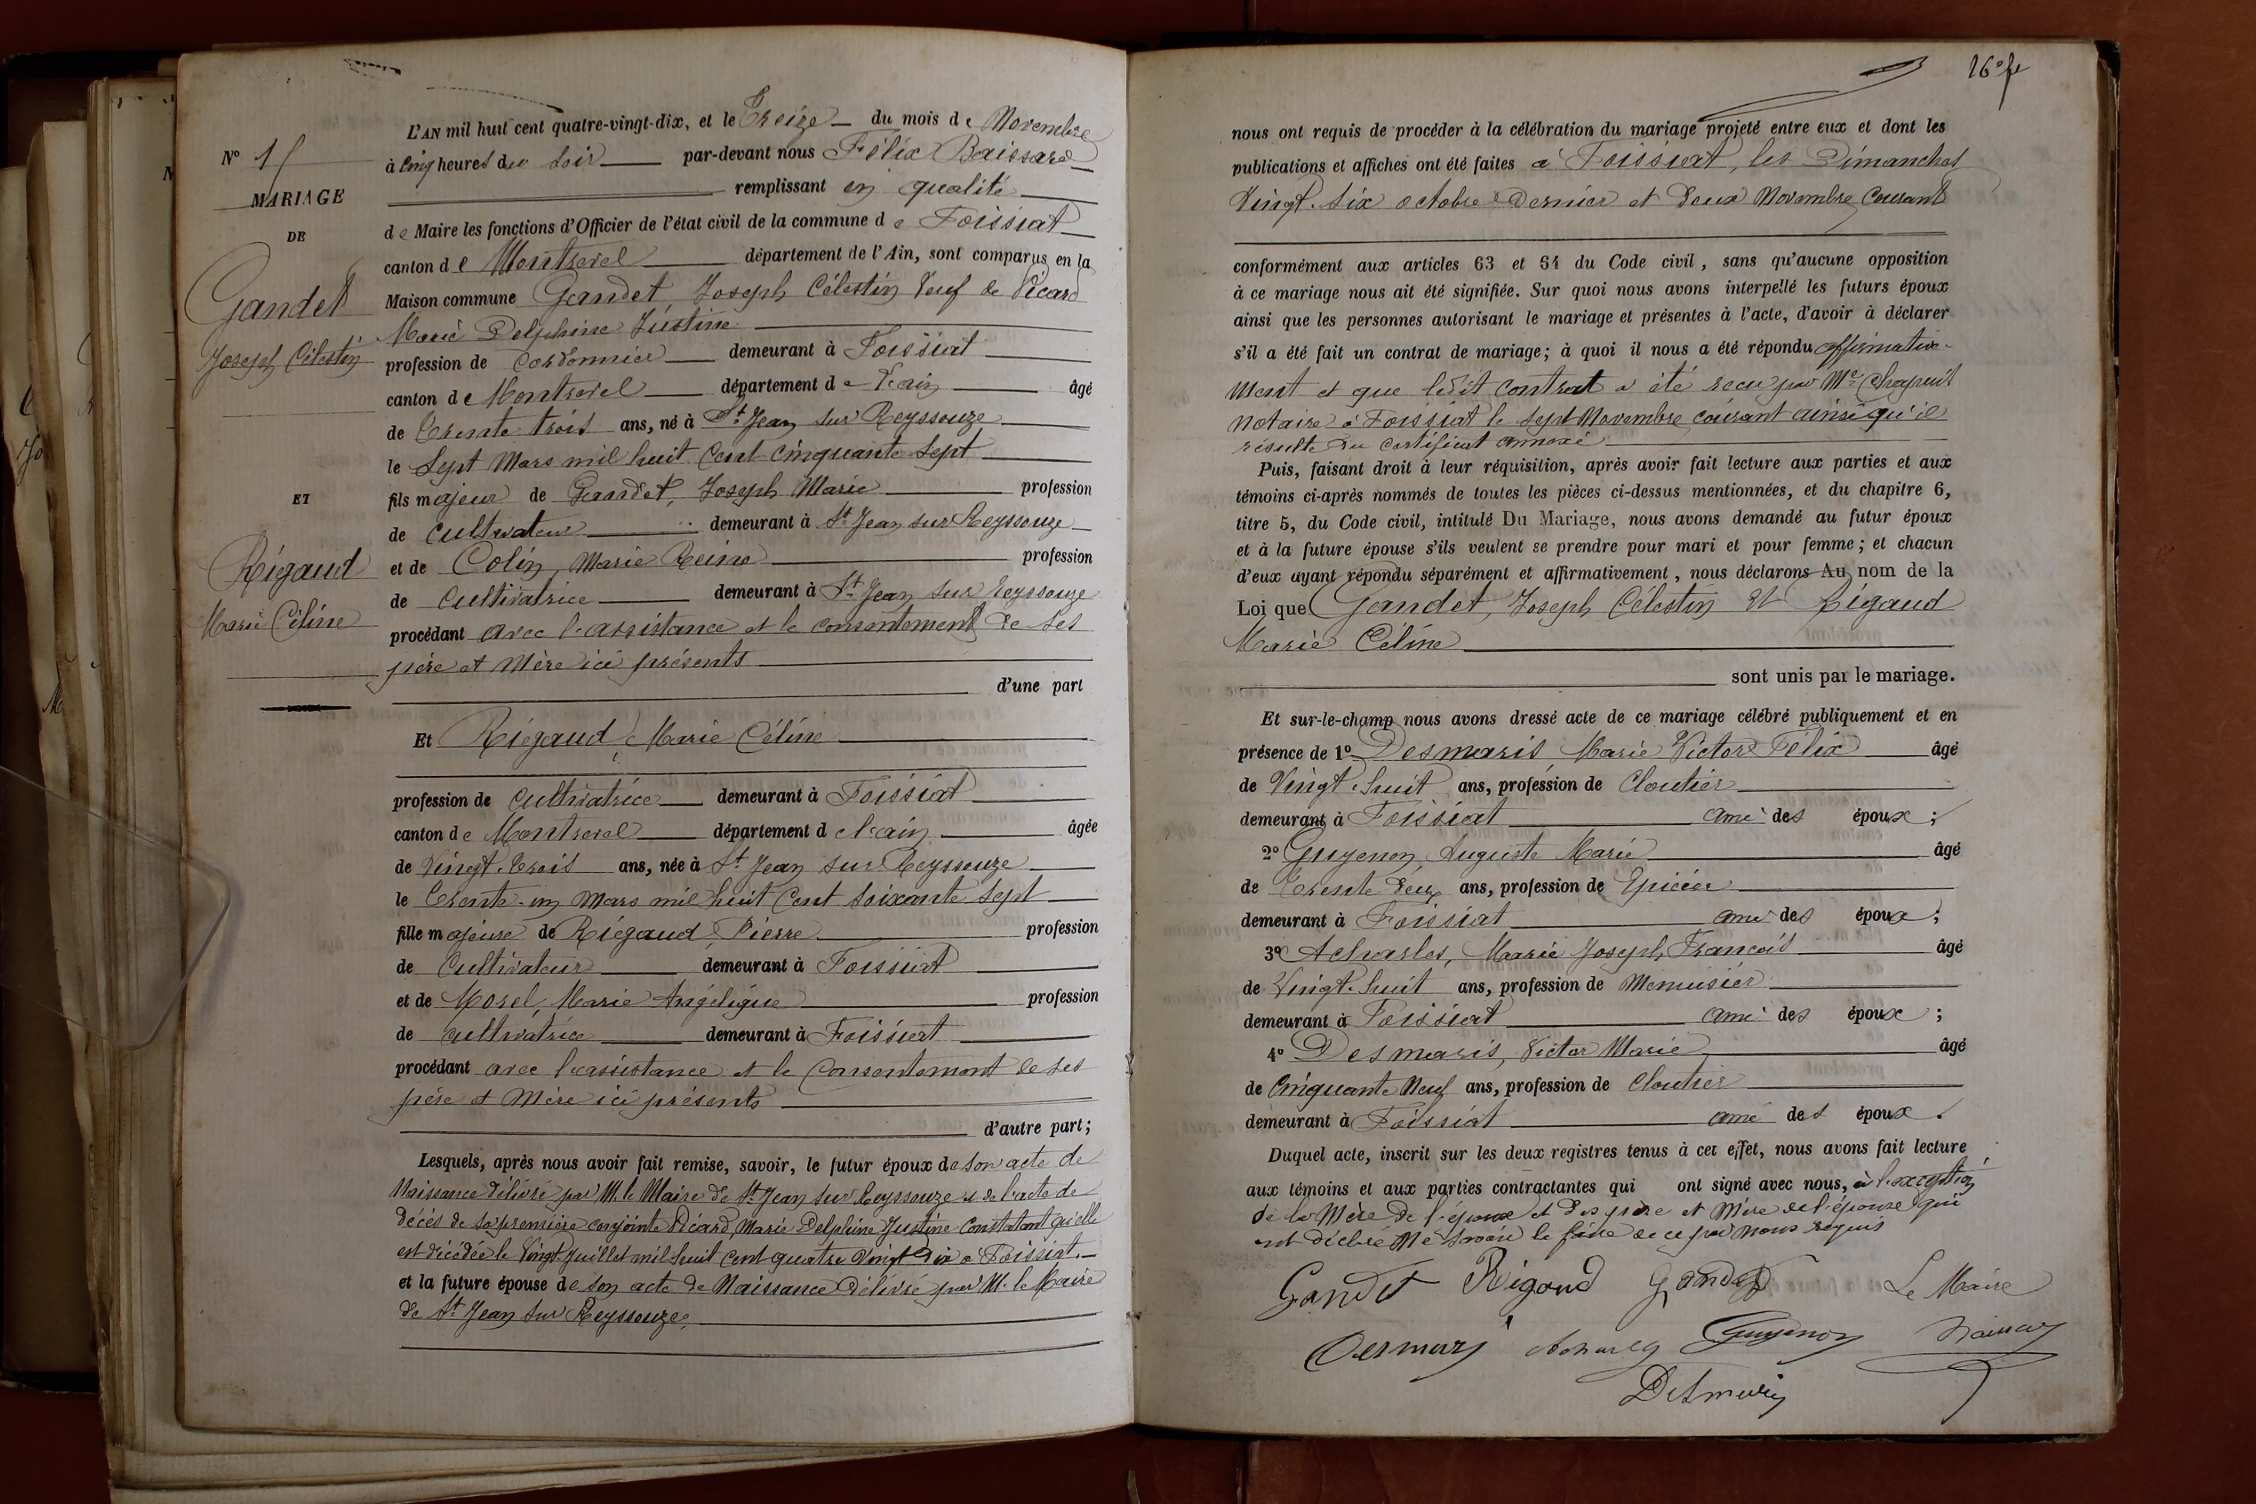 N° 15
MARIAGE
DE
Gandet
Joseph Célestin
ET
Rigaud
Marie Céline
L'AN mil huit cent quatre-vingt-dix, et le Treize du mois de Novembre
à Cinq heures du soir par-devant nous Félix Baissard
remplissant en qualité
de Maire les fonctions d'Officier de l'état civil de la commune de Foissiat
canton de Montrevel département de l'Ain, sont comparus en la
Maison commune Gandet, Joseph Célestin Veuf de Picard
Marie Delphine Justine
profession de Cordonnier demeurant à Foissiat
canton de Montrevel département de l'ain âgé
de Trente trois ans, né à St Jean sur Reyssouze
le Sept Mars mil huit Cent cinquante sept
fils majeur de Gandet, Joseph Marie profession
de cultivateur demeurant à St Jean sur Reyssouze
et de Colin, Marie Reine profession
de Cultivatrice demeurant à St Jean sur Reyssouze
procédant avec l'assistance et le consentement de ses
père et Mère ici présents
d'une part
Et Rigaud, Marie Céline
profession de Cultivatrice demeurant à Foissiat
canton de Montrevel département de l'ain âgée
de Vingt-trois ans, née à St Jean sur Reyssouze
le Trente-un Mars mil huit Cent soixante sept
fille majeure de Rigaud, Pierre profession
de Cultivateur demeurant à Foissiat
et de Morel, Marie Angélique profession
de Cultivatrice demeurant à Foissiat
procédant avec l'assistance et le Consentement de ses
père et Mère ici présents
d'autre part;
Lesquels, après nous avoir fait remise, savoir, le futur époux de son acte de
Naissance délivré par M. le Maire de St Jean sur Reyssouze et de l'acte de
décès de sa première conjointe Picard, Marie Delphine Justine Constatant qu'elle
est décédée le Vingt Juillet mil huit cent quatre Vingt Dix à Foissiat.
et la future épouse de son acte de Naissance délivré par M. le Maire
de St Jean sur Reyssouze.
16e fe
nous ont requis de procéder à la célébration du mariage projeté entre eux et dont les
publications et affiches ont été faites à Foissiat, les Dimanches
Vingt-six octobre Dernier et Deux Novembre Courant
conformément aux articles 63 et 64 du Code civil, sans qu'aucune opposition
à ce mariage nous ait été signifiée. Sur quoi nous avons interpellé les futurs époux
ainsi que les personnes autorisant le mariage et présentes à l'acte, d'avoir à déclarer
s'il a été fait un contrat de mariage; à quoi il nous a été répondu affirmative-
ment et que ledit contrat a été reçu par Me Chapuis
notaire à Foissiat le sept Novembre courant ainsi qu'il
résulte du certificat annexé
Puis, faisant droit à leur réquisition, après avoir fait lecture aux parties et aux
témoins ci-après nommés de toutes les pièces ci-dessus mentionnées, et du chapitre 6,
titre 5, du Code civil, intitulé Du Mariage, nous avons demandé au futur époux
et à la future épouse s'ils veulent se prendre pour mari et pour femme; et chacun
d'eux ayant répondu séparément et affirmativement, nous déclarons Au nom de la
Loi que Gandet, Joseph Célestin et Rigaud
Marie Céline
sont unis par le mariage.
Et sur-le-champ nous avons dressé acte de ce mariage célébré publiquement et en
présence de 1° Desmaris Marie Victor Félix âgé
de Vingt-huit ans, profession de Cloutier
demeurant à Foissiat ami des époux;
2° Guyenon, Auguste Marie âgé
de Trente Deux ans, profession de Epicier
demeurant à Foissiat ami des époux;
3° Acharles, Marie Joseph François âgé
de Vingt-huit ans, profession de Menuisier
demeurant à Foissiat ami des époux;
4° Desmaris, Victor Marie âgé
de Cinquante Neuf ans, profession de Cloutier
demeurant à Foissiat ami des époux.
Duquel acte, inscrit sur les deux registres tenus à cet effet, nous avons fait lecture
aux témoins et aux parties contractantes qui ont signé avec nous, à l'exception
de la Mère de l'époux et des père et Mère de l'épouse qui
ont déclaré Ne savoir le faire de ce par nous requis
Gandet Rigaud Gandet Le Maire
Desmaris Acharles Guyenon Baissard
Desmaris